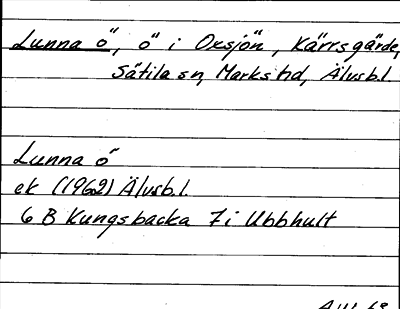 Lunna ö, ö i Oxsjön, Kärrsgärde,
Sätila sn, Marks hd, Älvsb.l
Lunna ö
ek (1962) Älvsb.l.
6 B Kungsbacka 7i Ubbhult